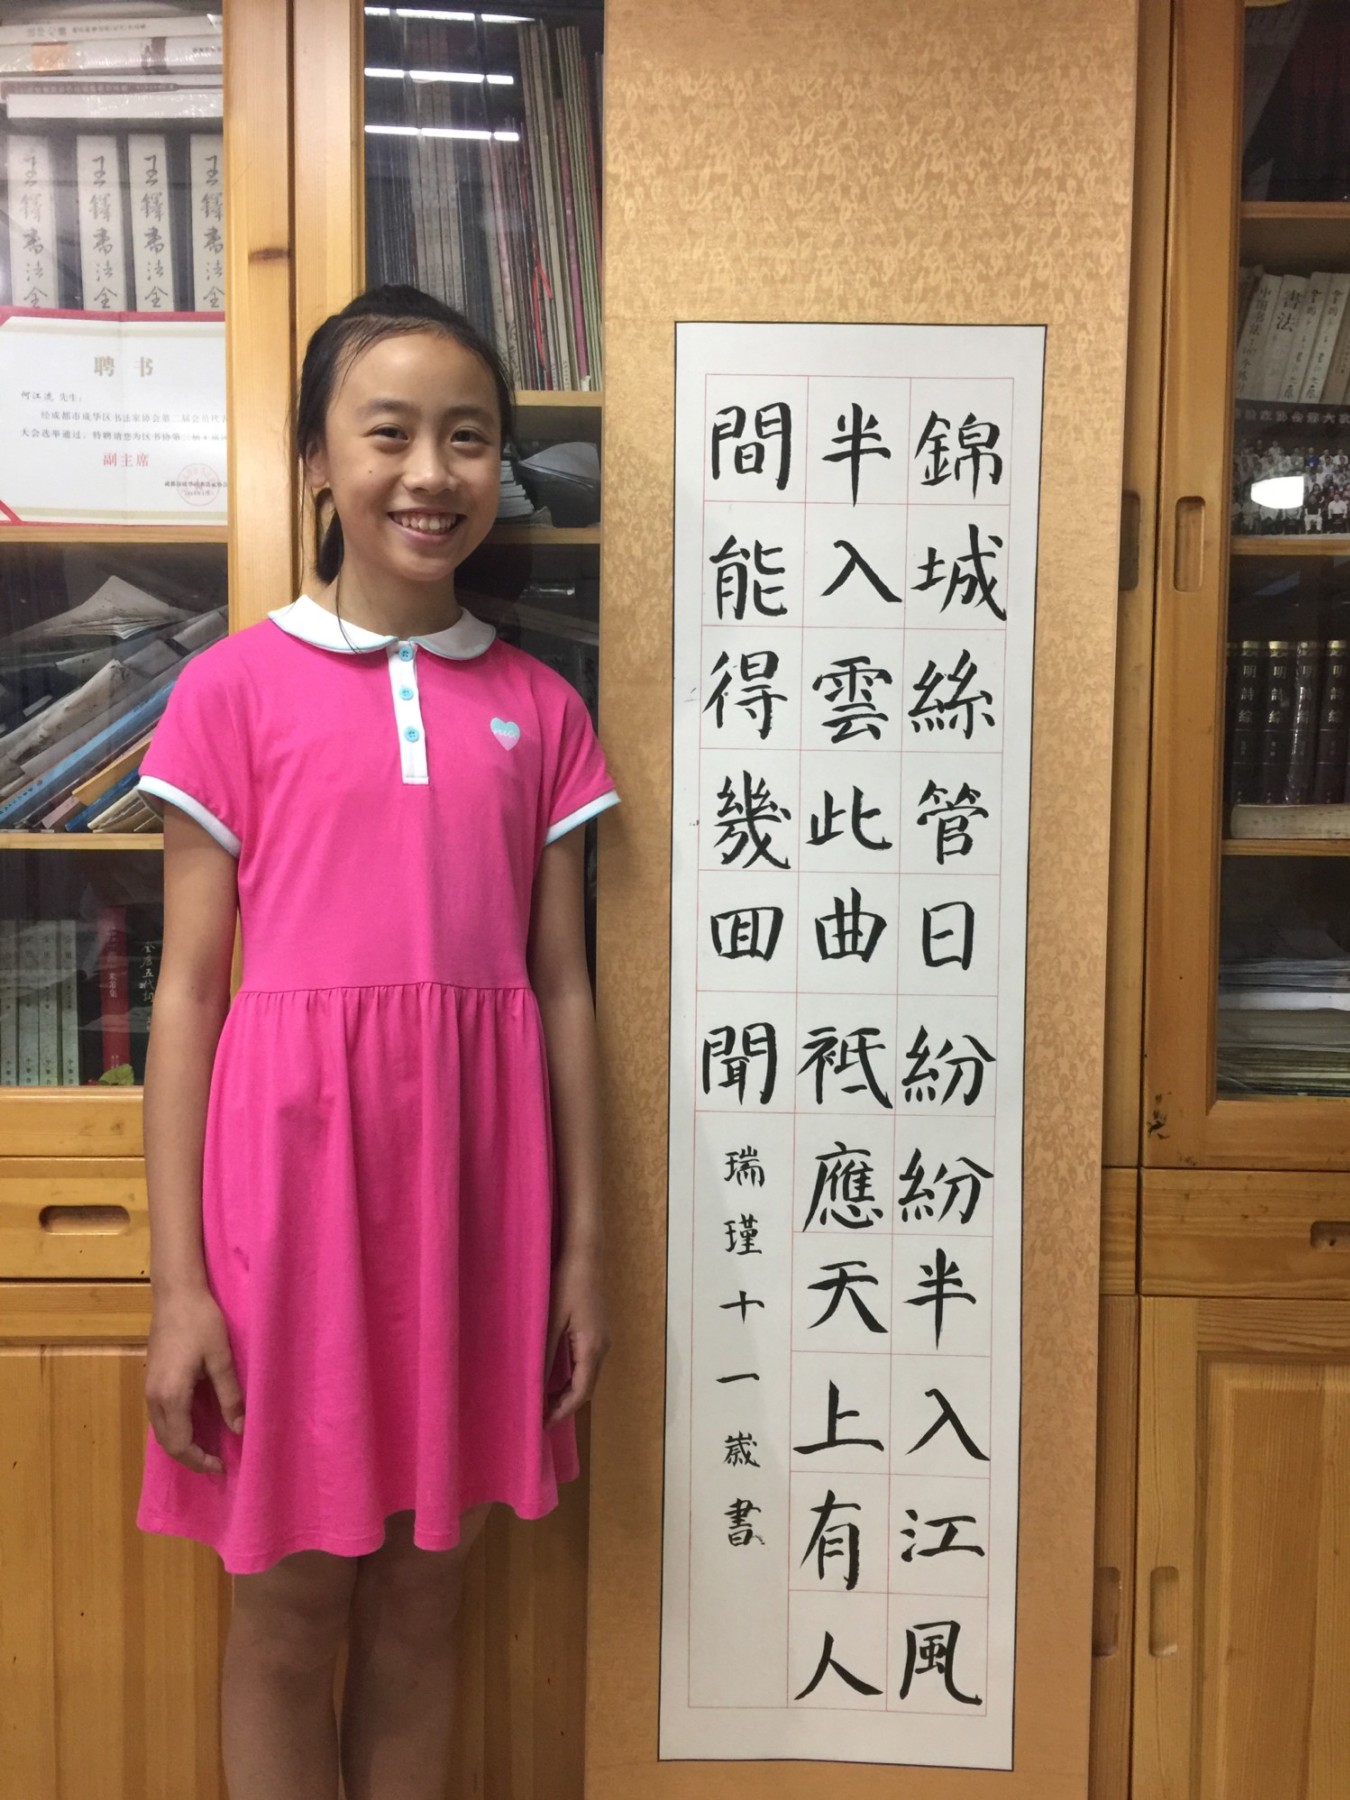 錦城絲管日紛紛半入江風
半入雲此曲祗應天上有人
間能得幾回聞
瑞瑾十一歲書
聘书
何江流 先生:
经成都市成华区书法家协会第二届会员代表
大会选举通过,特聘请您为区书协第
副主席
王鐸书法全
王鐸书法全
王鐸书法全
王鐸书法全
书法
明詩綜
明詩綜
明詩綜
全唐五代词